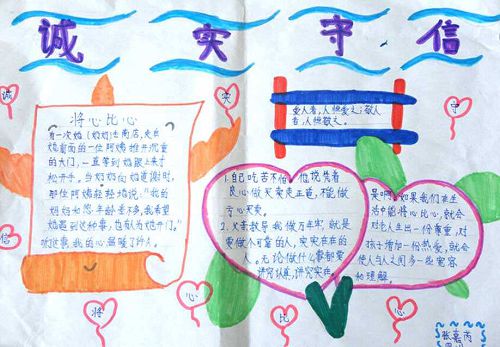 诚 实 守 信
诚
实
守
信
将
心
比
心
将心比心
有一次奶奶去商店,走在
她前面的一位阿姨推开沉重
的大门,一直等到她跟上来才
松开手。当奶奶向她道谢时,
那位阿姨轻轻地说:"我的
妈妈和您年龄差不多,我希望
她遇到这种事,也有人为她开门。"
听这事,我的心温暖了许久。
爱人者,人恒爱之;敬人
者,人恒敬之。
1.自己吃苦不怕,他说凭着
良心做买卖走正道,不能做
亏心买卖。
2.父亲教导我做万年牢,就是
要做个可靠的人,实实在在的
人。无论做什么事都要
讲究认真,讲究实在。
是啊,如果我们在生
活中能将心比心,就会
对老人生出一份尊重,对
孩子增加一份热爱,就会
使人与人之间多一些宽容
和理解。
张嘉芮